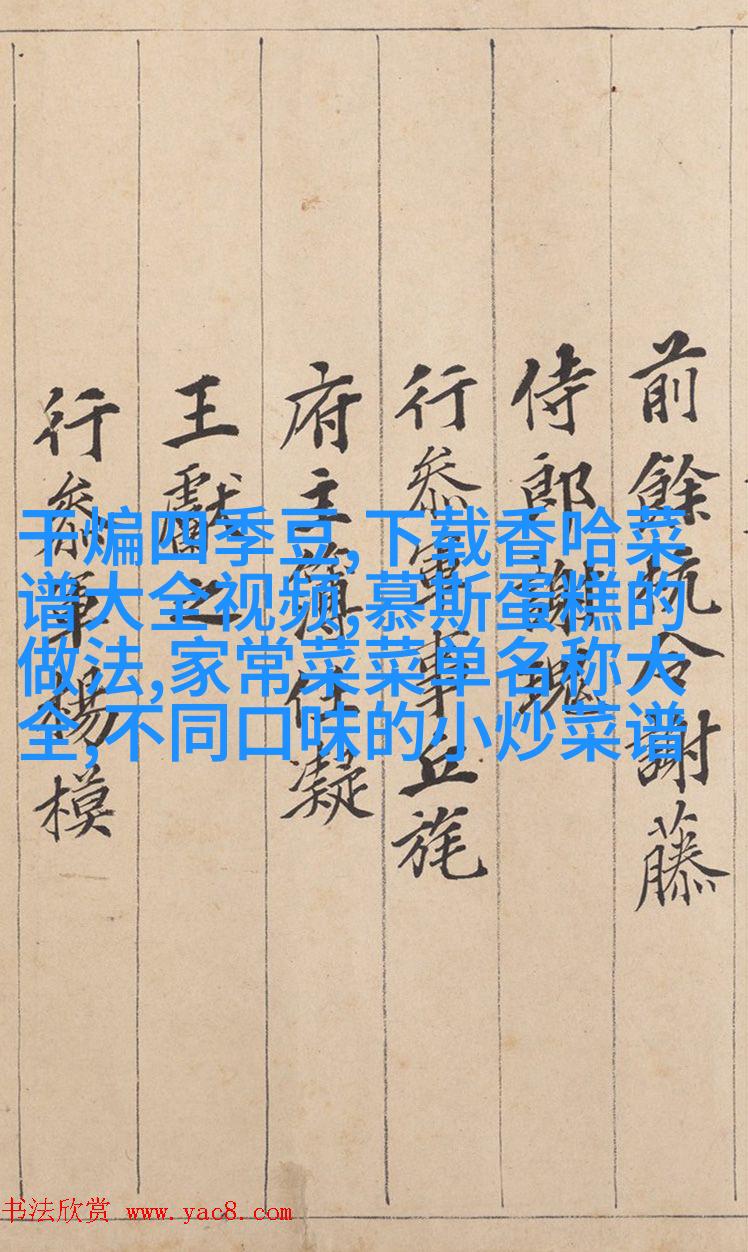 前餘杭令謝藤
侍郎謝瑰
行叅軍事丘旄
府主簿任凝
王獻之
行叅軍楊模
干煸四季豆,下载香哈菜
谱大全视频,慕斯蛋糕的
做法,家常菜菜单名称大
全,不同口味的小炒菜谱
书法欣赏 www.yac8.com